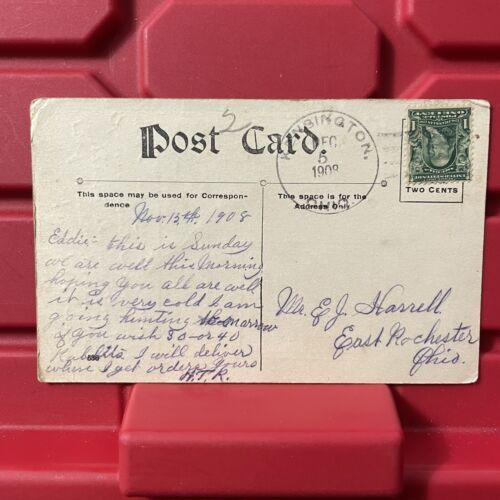 2
Post Card.
KENSINGTON,
DEC
5
1908
OHIO.
1
TWO CENTS
This space may be used for Correspon-
dence
This space is for the
Address Only
Nov. 15th, 1908
Eddie:- this is Sunday
we are well this morning
hoping you all are well
it is very cold I am
going hunting to-morrow
if you wish 30 or 40
Rabbitts I will deliver
when I get orders yours
H.T.R.
Mr. E. J. Harrell
East Rochester
Ohio.